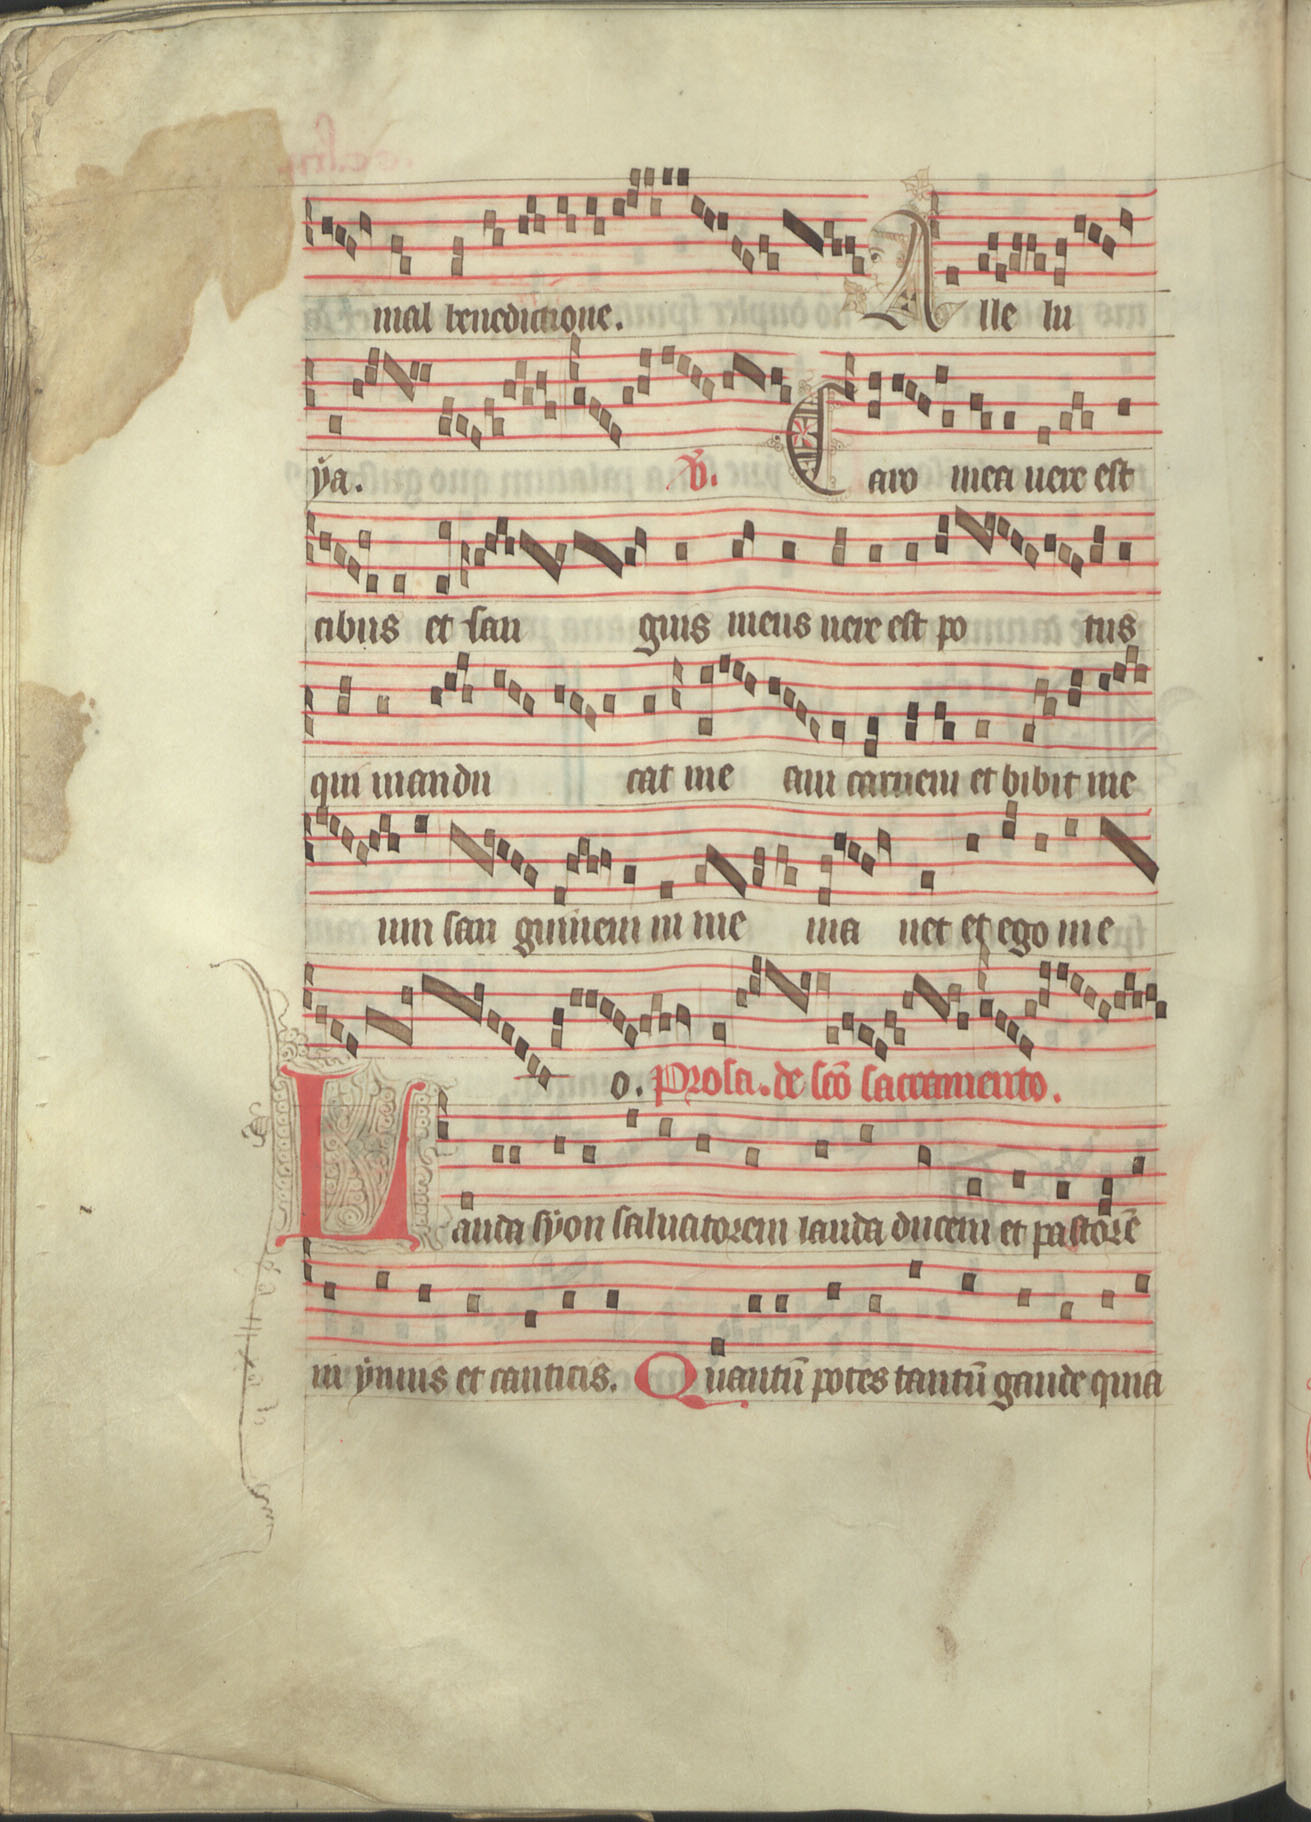 mal benedictione. A lle lu
ya. ℣. Caro mea uere est
cibus et san guis meus uere est po tus
qui mandu cat me am carnem et bibit me
um san guinem in me ma net et ego in e
o. Prosa. de sc̄o sacramento.
Lauda syon saluatorem lauda ducem et pastorē
in ymnis et canticis. Quantū potes tantū gaude quia